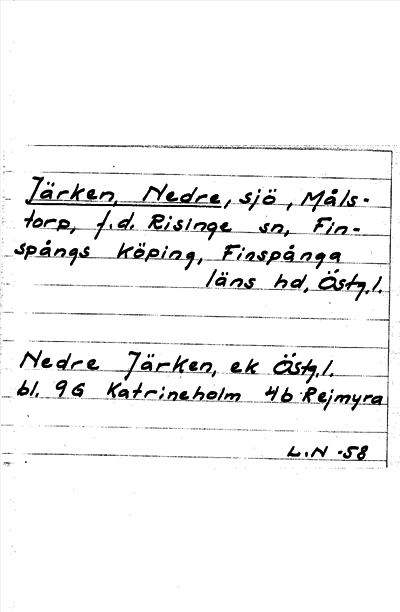 Järken, Nedre, sjö, Måls-
torp, f.d. Risinge sn, Fin-
spångs köping, Finspånga
läns hd, Östg.l.
Nedre Järken, ek Östg.l.
bl. 9G Katrineholm 4b Rejmyra
L.N -58